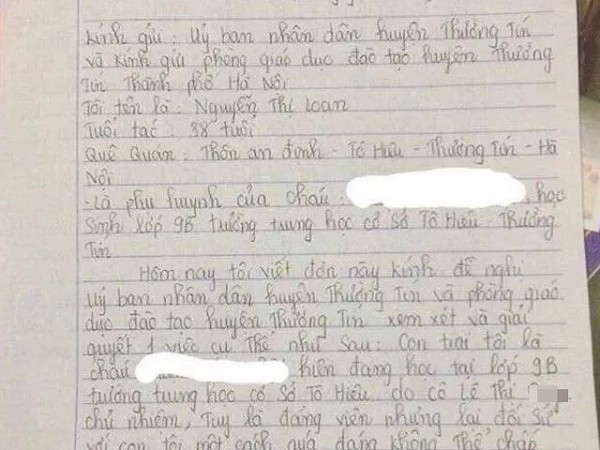 Kính gửi : Uỷ ban nhân dân huyện Thường Tín
và kính gửi phòng giáo dục đào tạo huyện Thường
Tín Thành phố Hà Nội
Tôi tên là : Nguyễn Thị Loan
Tuổi tác : 38 tuổi
Quê Quán : Thôn an định - Tô Hiệu - Thường Tín - Hà
Nội
- Là phụ huynh của cháu : , học
sinh lớp 9B tường tung học cơ sở Tô Hiệu - Thường
Tín
Hôm nay tôi viết đơn này kính đề nghị
Uỷ ban nhân dân huyện Thường Tín và phòng giáo
dục đào tạo huyện Thường Tín xem xét và giải
quyết 1 việc cụ thể như sau : Con trai tôi là
cháu hiện đang học tại lớp 9B
tường tung học cơ sở Tô Hiệu do cô Lê Thị
chủ nhiệm, Tuy là đảng viên nhưng lại đối sử
với con tôi một cách quá đáng không thể chấp